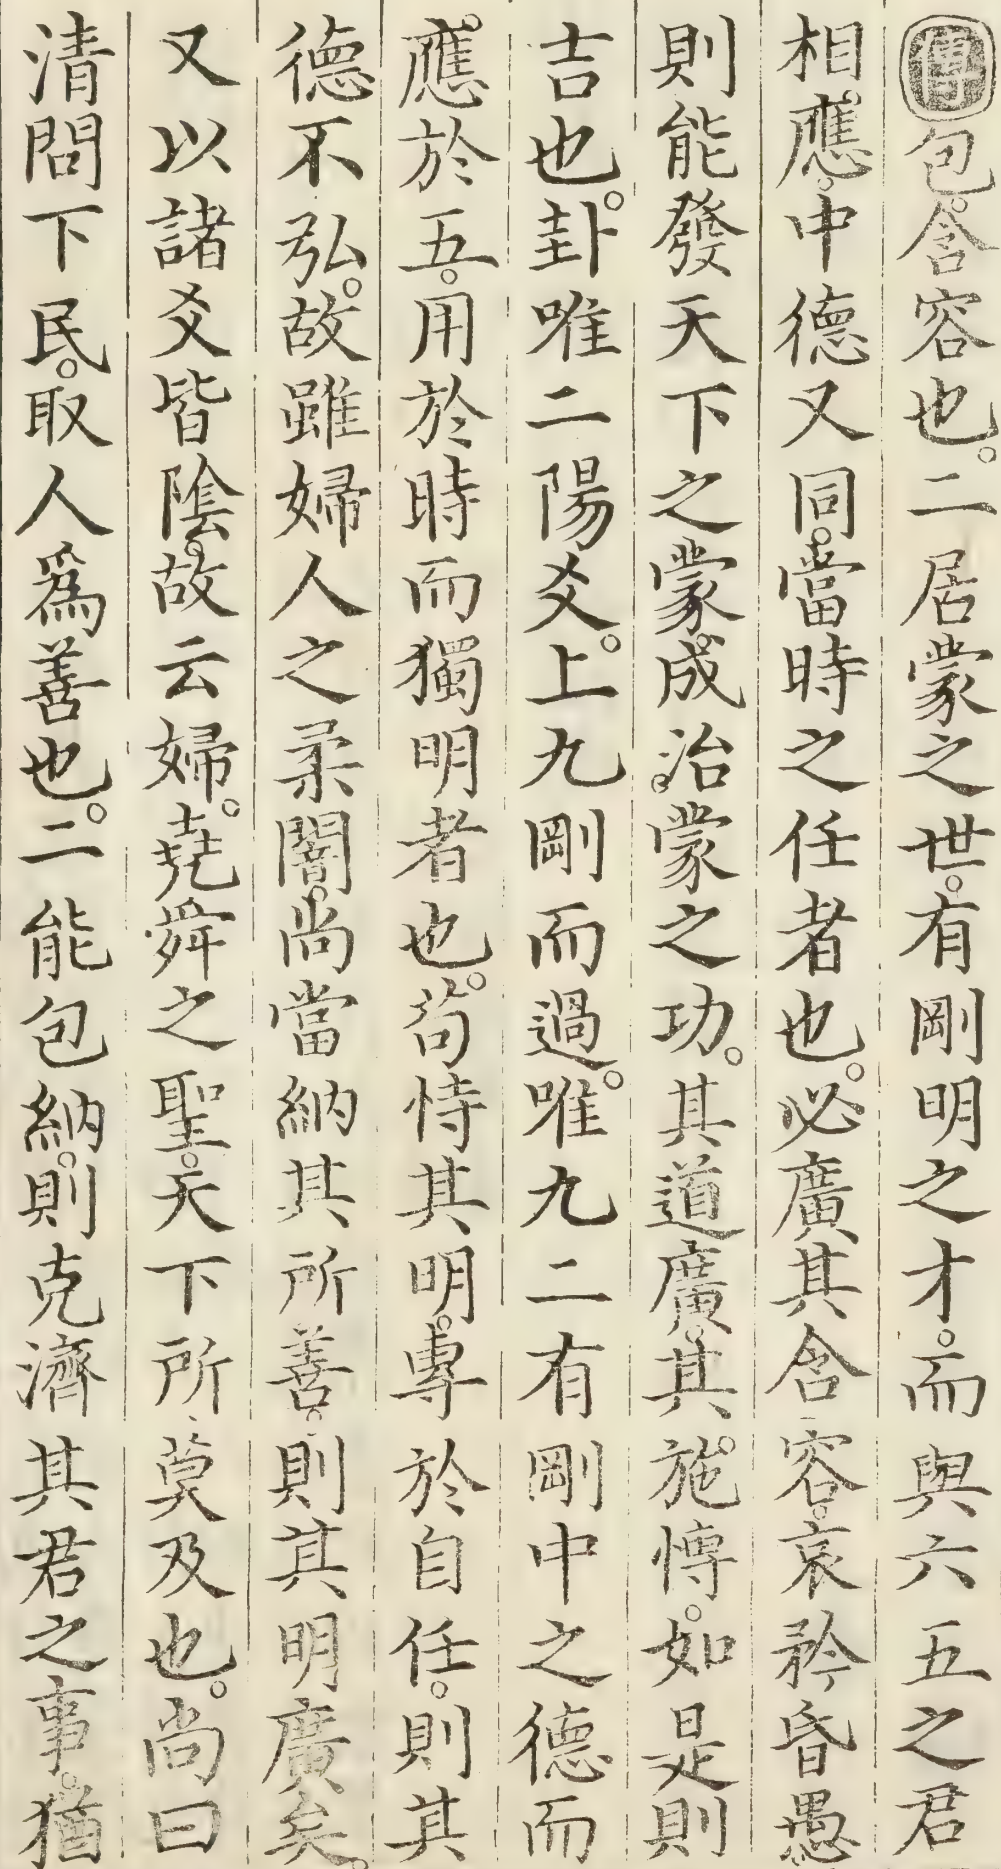 傳包。含容也。二居蒙之世。有剛明之才。而與六五之君
相應。中德又同。當時之任者也。必廣其含容。哀矜昏愚
則能發天下之蒙。成治蒙之功。其道廣。其施愽。如是則
吉也。卦唯二陽爻。上九剛而過。唯九二有剛中之德而
應於五。用於時而獨明者也。苟恃其明。專於自任。則其
德不弘。故雖婦人之柔闇。尚當納其所善。則其明廣矣。
又以諸爻皆陰。故云婦。堯舜之聖。天下所莫及也。尚曰
清問下民。取人爲善也。二能包納。則克濟其君之事。猶